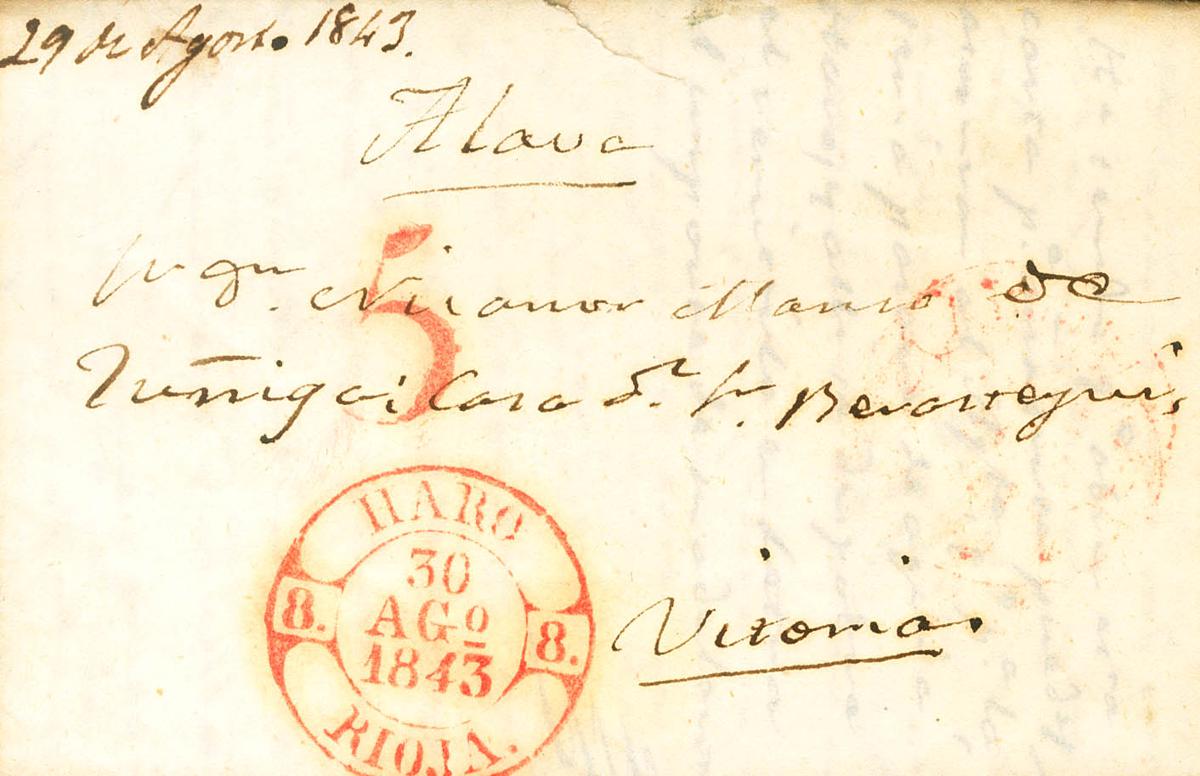 29 de Agosto. 1843.
Alava
Sr Dn. Nicanor Manso de
Zuñiga; Casa Sr. Berasstegui,
Vitoria.
5
HARO
30
AGº
1843
8. 8.
RIOJA.